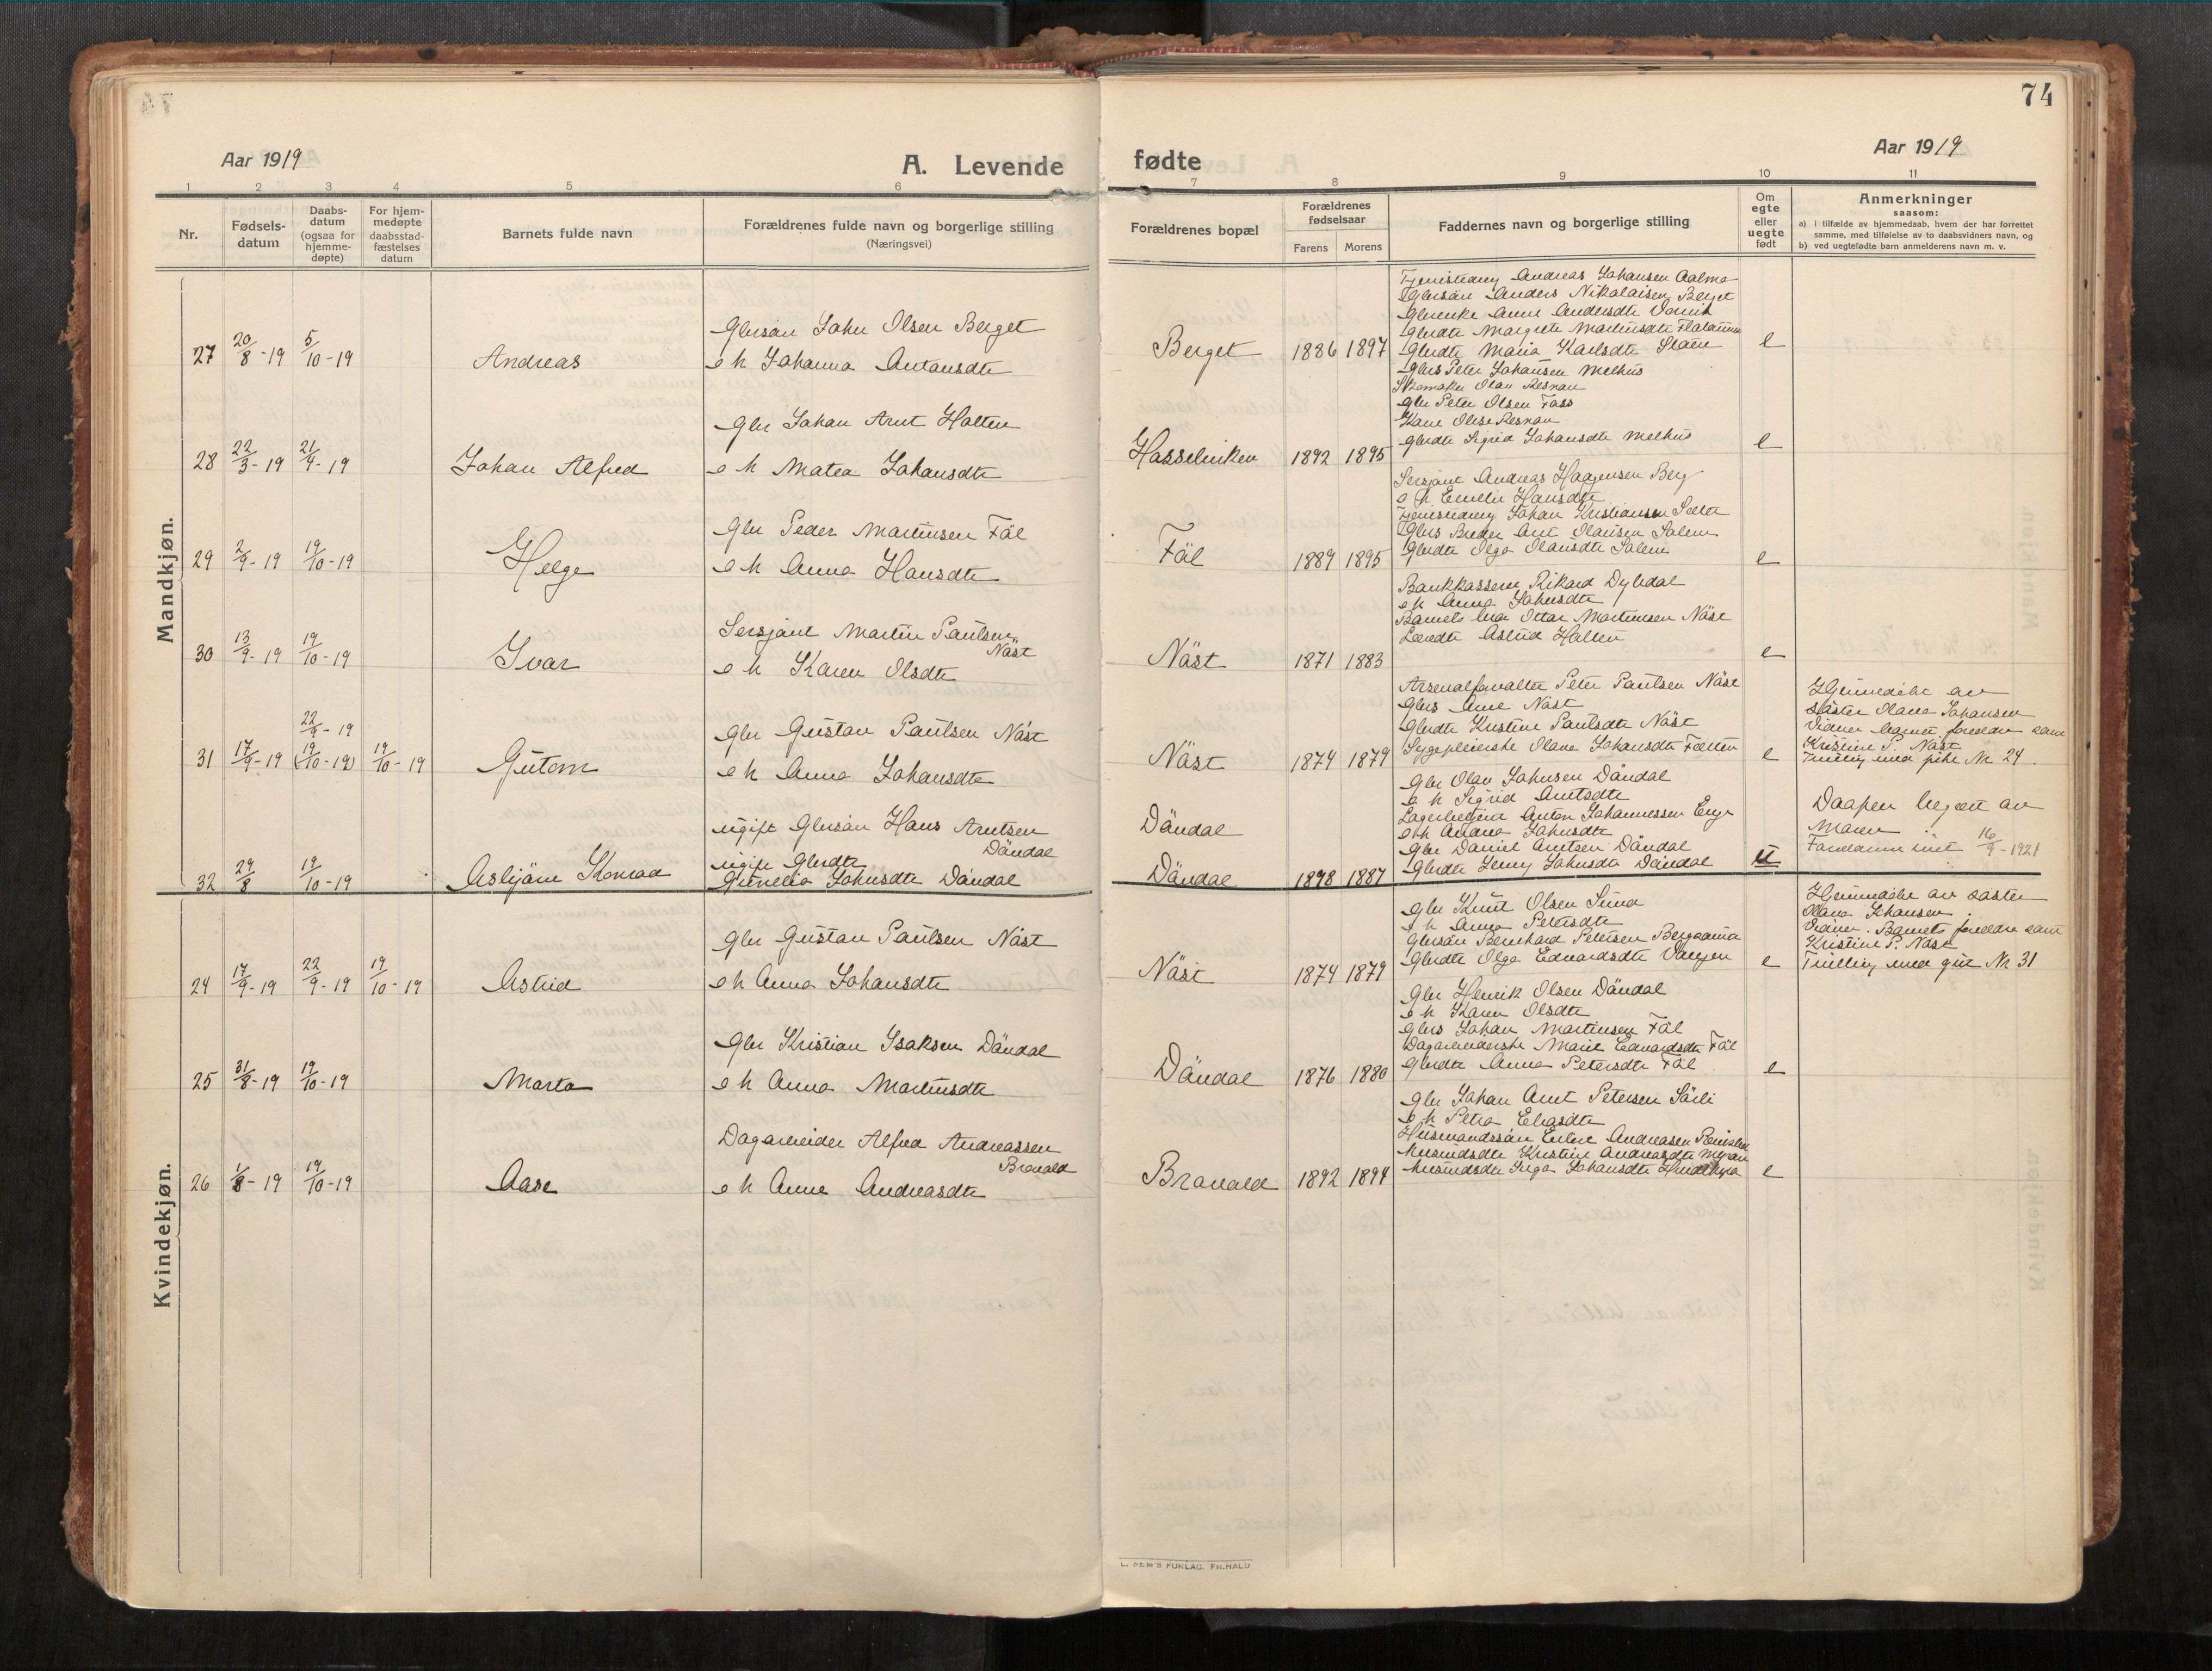 74
Aar 1919
A. Levende fødte
Aar 1919
1 2 3 4 5 6 7 8 9 10 11
Nr.
Fødsels-datum
Daabs-datum (ogsaa for hjemme-døpte)
For hjem-medøpte daabsstad-fæstelses datum
Barnets fulde navn
Forældrenes fulde navn og borgerlige stilling (Næringsvei)
Forældrenes bopæl
Forældrenes fødselsaar
Farens Morens
Faddernes navn og borgerlige stilling
Om egte eller uegte født
Anmerkninger
saasom:
a) i tilfælde av hjemmedaab, hvem der har forrettet samme, med tilføielse av to daabsvidners navn, og
b) ved uegtefødte barn anmelderens navn m. v.
Mandkjøn.
27 20/8-19 5/10-19 Andreas
Gbrsøn John Olsen Berget
e h Johanna Antonsdtr
Berget 1886 1897
Andreas Johansen Aalmo
Gbrsøn Anders Nikolaisen Berget
Gbrenke Anne Andersdtr
Gbrdtr Margrete Martinsdtr
Gbrdtr Maria Karlsdtr
e
28 22/3-19 21/4-19 Johan Alfred
Gbr Johan Arnt Holten
e h Matea Johansdtr
Hasselviken 1892 1895
Gbrs Peter Johansen Melhus
Skomaker Olav Resnan
Gbr Peter Olsen Foss
Kone Olise Resnan
Gbrdtr Sigrid Johansdtr Melhus
e
29 2/9-19 19/10-19 Helge
Gbr Peder Martinsen Föl
e h Anna Hansdtr
Föl 1889 1895
Sersjant Andreas Haagensen Berg
e h Emelie Hansdtr
Johan Kristiansen
Gbrs Arnt Olausen Salem
Gbrdtr Olga Olausdtr Salem
e
30 13/9-19 19/10-19 Ivar
Sersjant Martin Paulsen
Näst
e h Karen Olsdtr
Näst 1871 1883
Bankkasserer Rikard Dybdal
e h Anna Johnsdtr
Barnets bror Ottar Martinsen Näst
Astrid Holten
e
31 17/9-19 22/9-19 (19/10-19) 19/10-19 Gutorm
Gbr Gustav Paulsen Näst
e h Anna Johansdtr
Näst 1874 1879
Arsenalforvalter Peter Paulsen Näst
Gbrs Arne Näst
Gbrdtr Kristine Paulsdtr Näst
Sygepleierske Olava Johansdtr
e
Hjemmedöbt av
söster Olava Johansen
Vidner barnets foreldre samt
Kristine P. Näst
Tvilling med pike Nr 24.
32 29/8 19/10-19 Asbjörn Konrad
ugift Gbrsön Hans Arntsen
Döndal
ugift Gbrdtr
Johnsdtr Döndal
Döndal
Döndal 1898 1887
Gbr Olav Johnsen Döndal
e h Sigrid Arntsdtr
Anton Johannessen
e h Johnsdtr
Gbr Daniel Arntsen Döndal
Gbrdtr Jenny Johnsdtr Döndal
u
Daapen begært av
Moren
16/9-1921
Kvindekjøn.
24 17/9-19 22/9-19 19/10-19 Astrid
Gbr Gustav Paulsen Näst
e h Anna Johansdtr
Näst 1874 1879
Gbr Knut Olsen
e h Anna Petersdtr
Gbrsön Bernhard Petersen
Gbrdtr Olga Edvardsdtr
e
Hjemmedöbt av söster
Olava Johansen.
Vidner. Barnets foreldre samt
Kristine P. Näst
Tvilling med gut Nr 31
25 31/8-19 19/10-19 Marta
Gbr Kristian Isaksen Döndal
e h Anna Martinsdtr
Döndal 1876 1880
Gbr Henrik Olsen Döndal
e h Karen Olsdtr
Gbrs Johan Martinsen Föl
Dagarbeiderske Marie Edvardsdtr Föl
Gbrdtr Anna Petersdtr Föl
e
26 1/8-19 19/10-19 Aase
Dagarbeider Alfred Andreassen
Bravald
e h Anne Andreasdtr
Bravald 1892 1894
Gbr Johan Arnt Petersen Sörli
e h Petra Eliasdtr
Husmandssön Andreasen
Kristine Andreasdtr
Inga Johansdtr
e
E. SEM'S FORLAG, FR.HALD